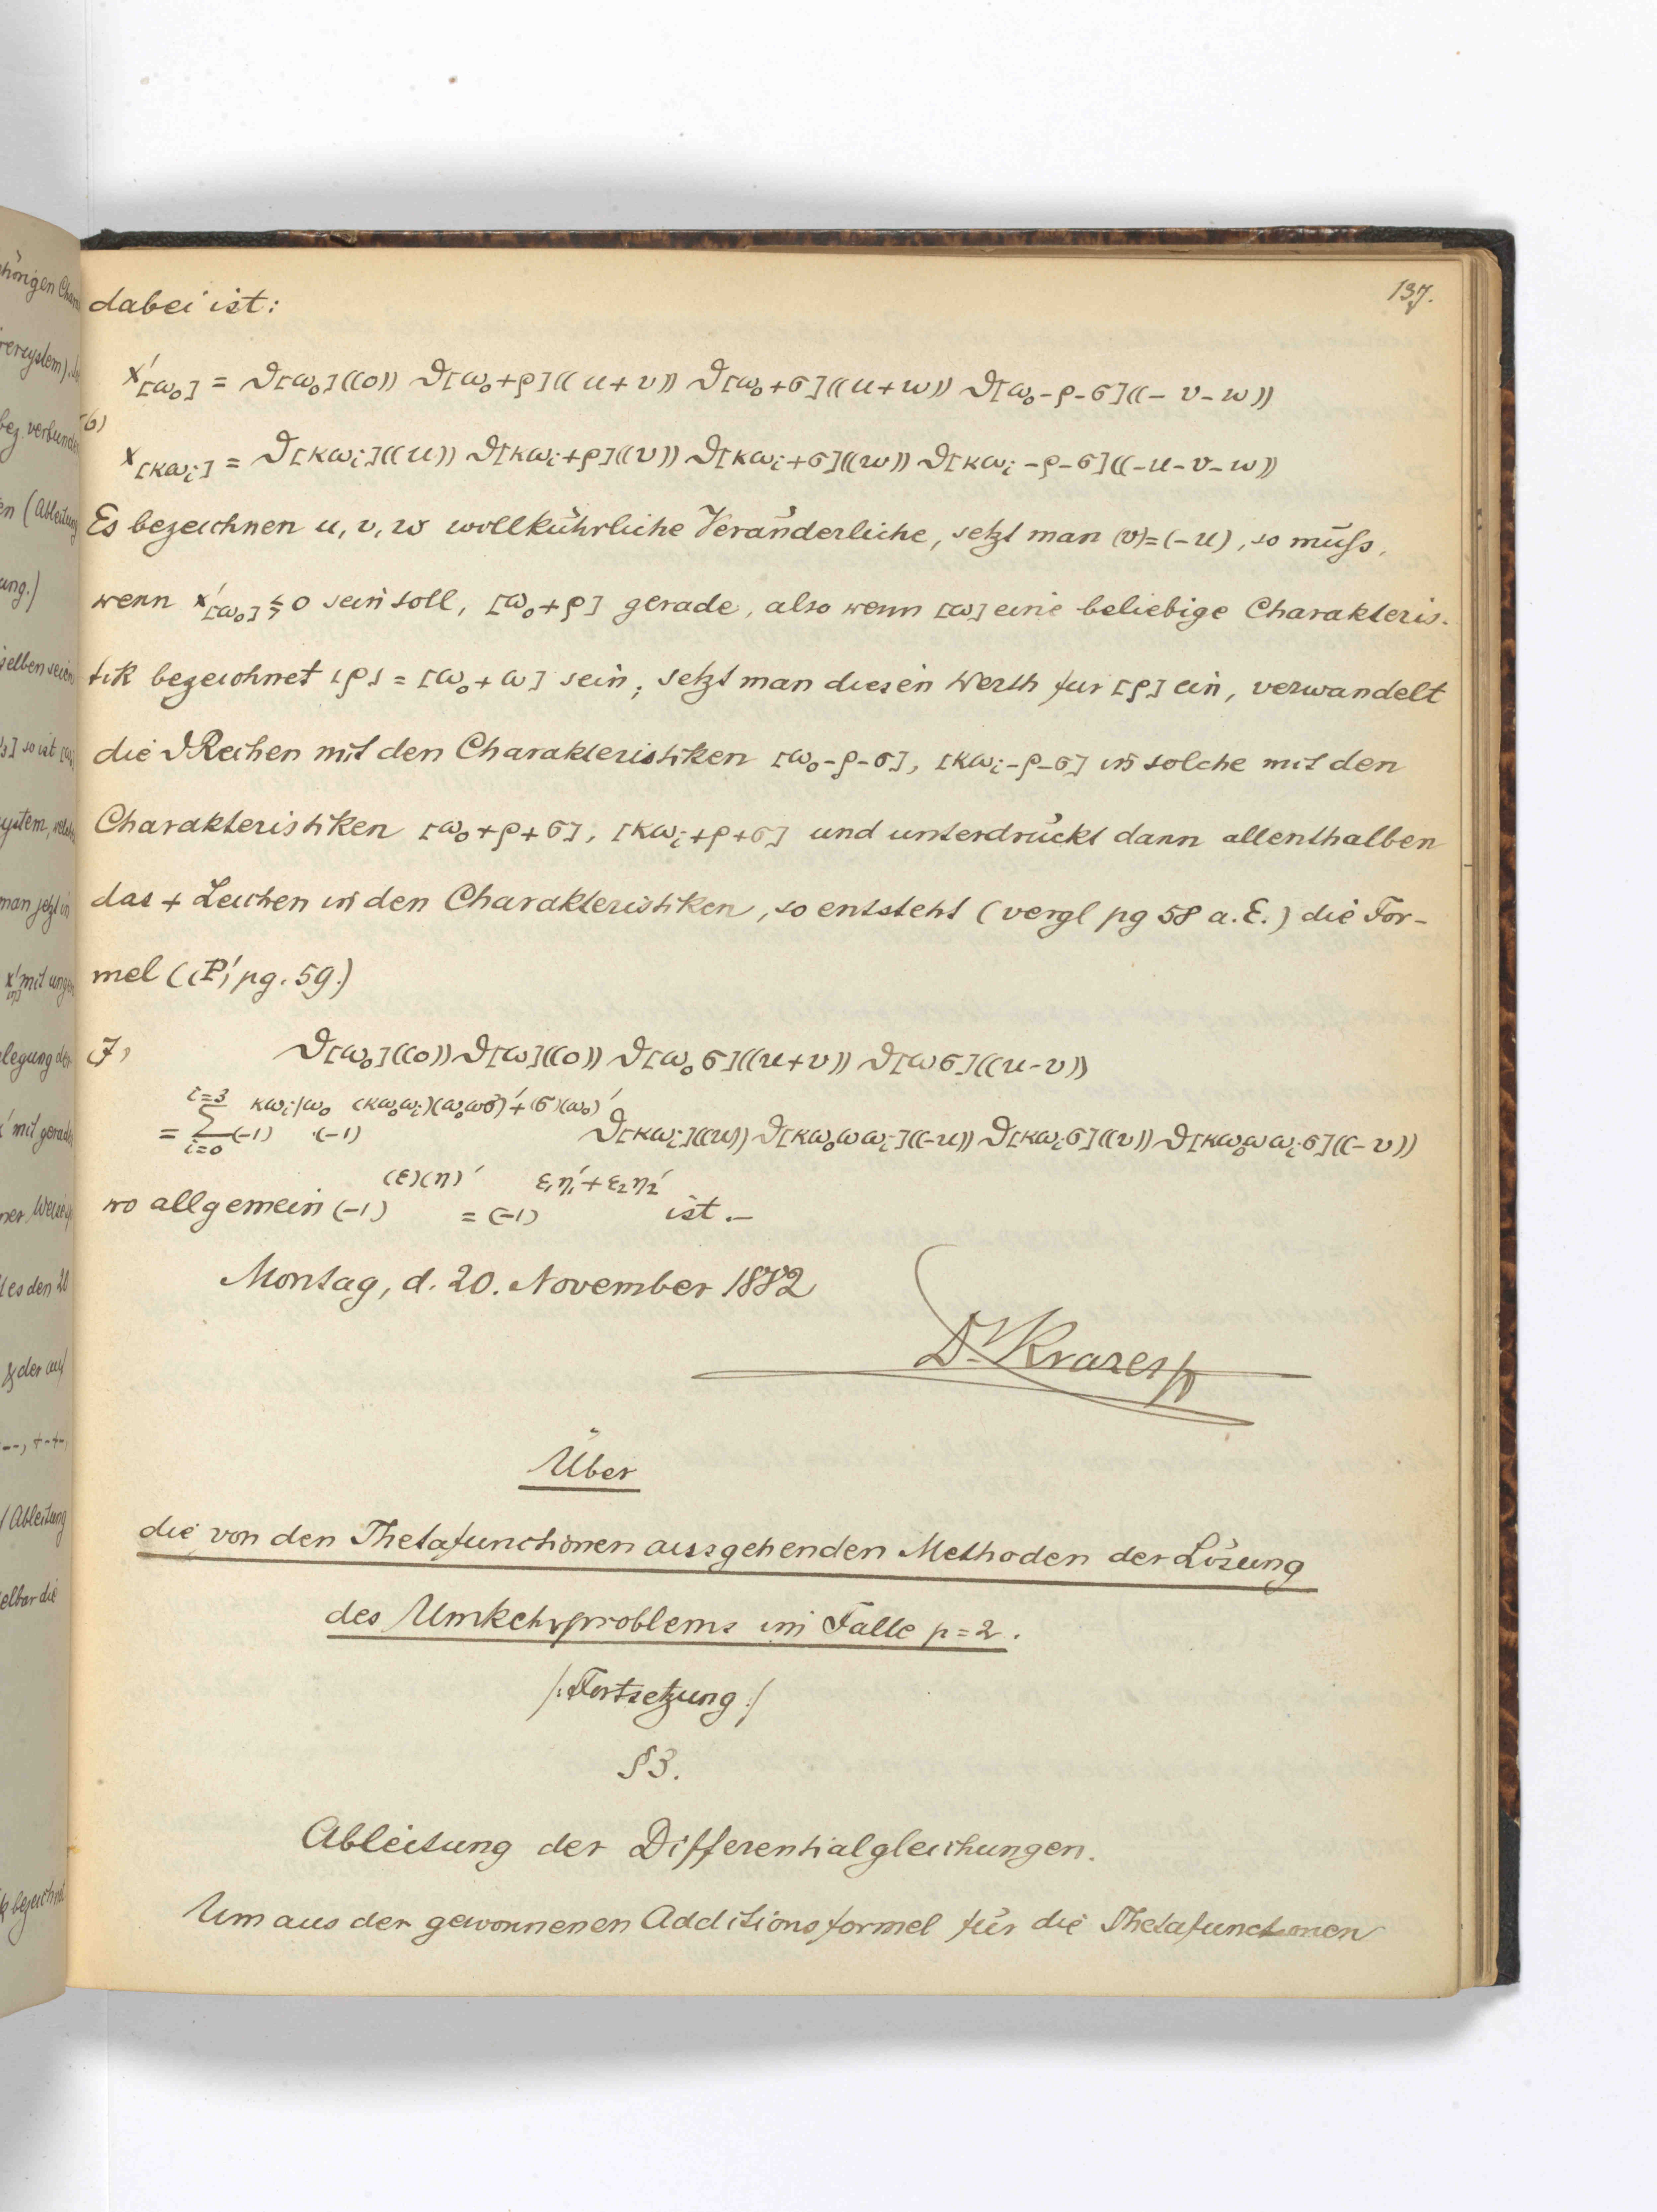 137.
dabei ist:
x'[ω₀] = ϑ[ω₀]((0)) ϑ[ω₀+ρ]((u+v)) ϑ[ω₀+σ]((u+w)) ϑ[ω₀-ρ-σ]((-v-w))
(6)
x[κω_i] = ϑ[κω_i]((u)) ϑ[κω_i+ρ]((v)) ϑ[κω_i+σ]((w)) ϑ[κω_i-ρ-σ]((-u-v-w))
Es bezeichnen u, v, w wollkührliche Veränderliche, setzt man (v)=(-u), so muß,
wenn x'[ω₀] ≶ 0 sein soll, [ω₀+ρ] gerade, also wenn [ω] eine beliebige Charakteris-
tik bezeichnet [ρ] = [ω₀+ω] sein; setzt man diesen Werth fur [ρ] ein, verwandelt
die ϑReihen mit den Charakteristiken [ω₀-ρ-σ], [κω_i-ρ-σ] in solche mit den
Charakteristiken [ω₀+ρ+σ], [κω_i+ρ+σ] und unterdrückt dann allenthalben
das + Zeichen in den Charakteristiken, so entsteht (vergl pg 58 a.E.) die For-
mel ((P)' pg. 59.)
(7) ϑ[ω₀]((0)) ϑ[ω]((0)) ϑ[ω₀σ]((u+v)) ϑ[ωσ]((u-v))
= Σ_{i=0}^{i=3} (-1)^{κω_i/ω₀} (-1)^{(κω₀ω_i)(ω₀ωσ)'+(σ)(ω₀)'} ϑ[κω_i]((u)) ϑ[κω₀ωω_i]((-u)) ϑ[κω_iσ]((v)) ϑ[κω₀ωω_iσ]((-v))
wo allgemein (-1)^{(ε)(η)'} = (-1)^{ε₁η₁'+ε₂η₂'} ist.—
Montag, d. 20. November 1882
Dr Krazer
Über
die von den Thetafunctionen ausgehenden Methoden der Lösung
des Umkehrproblems im Falle p=2.
/:Fortsetzung:/
§3.
Ableitung der Differentialgleichungen.
Um aus der gewonnenen Additionsformel für die Thetafunctionen